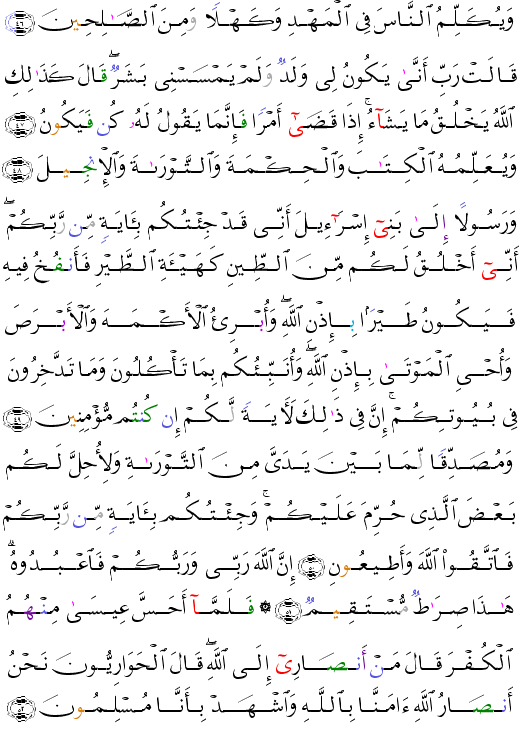 وَيُكَلِّمُ ٱلنَّاسَ فِى ٱلْمَهْدِ وَكَهْلًا وَمِنَ ٱلصَّـٰلِحِينَ ﴿٤٦﴾
قَالَتْ رَبِّ أَنَّىٰ يَكُونُ لِى وَلَدٌ وَلَمْ يَمْسَسْنِى بَشَرٌ ۖ قَالَ كَذَٰلِكِ
ٱللَّهُ يَخْلُقُ مَا يَشَآءُ ۚ إِذَا قَضَىٰٓ أَمْرًا فَإِنَّمَا يَقُولُ لَهُۥ كُن فَيَكُونُ ﴿٤٧﴾
وَيُعَلِّمُهُ ٱلْكِتَـٰبَ وَٱلْحِكْمَةَ وَٱلتَّوْرَىٰةَ وَٱلْإِنجِيلَ ﴿٤٨﴾
وَرَسُولًا إِلَىٰ بَنِىٓ إِسْرَٰٓءِيلَ أَنِّى قَدْ جِئْتُكُم بِـَٔايَةٍ مِّن رَّبِّكُمْ ۖ
أَنِّىٓ أَخْلُقُ لَكُم مِّنَ ٱلطِّينِ كَهَيْـَٔةِ ٱلطَّيْرِ فَأَنفُخُ فِيهِ
فَيَكُونُ طَيْرًۢا بِإِذْنِ ٱللَّهِ ۖ وَأُبْرِئُ ٱلْأَكْمَهَ وَٱلْأَبْرَصَ
وَأُحْىِ ٱلْمَوْتَىٰ بِإِذْنِ ٱللَّهِ ۖ وَأُنَبِّئُكُم بِمَا تَأْكُلُونَ وَمَا تَدَّخِرُونَ
فِى بُيُوتِكُمْ ۚ إِنَّ فِى ذَٰلِكَ لَـَٔايَةً لَّكُمْ إِن كُنتُم مُّؤْمِنِينَ ﴿٤٩﴾
وَمُصَدِّقًا لِّمَا بَيْنَ يَدَىَّ مِنَ ٱلتَّوْرَىٰةِ وَلِأُحِلَّ لَكُم
بَعْضَ ٱلَّذِى حُرِّمَ عَلَيْكُمْ ۚ وَجِئْتُكُم بِـَٔايَةٍ مِّن رَّبِّكُمْ
فَٱتَّقُوا۟ ٱللَّهَ وَأَطِيعُونِ ﴿٥٠﴾ إِنَّ ٱللَّهَ رَبِّى وَرَبُّكُمْ فَٱعْبُدُوهُ ۗ
هَـٰذَا صِرَٰطٌ مُّسْتَقِيمٌ ﴿٥١﴾ ۞ فَلَمَّآ أَحَسَّ عِيسَىٰ مِنْهُمُ
ٱلْكُفْرَ قَالَ مَنْ أَنصَارِىٓ إِلَى ٱللَّهِ ۖ قَالَ ٱلْحَوَارِيُّونَ نَحْنُ
أَنصَارُ ٱللَّهِ ءَامَنَّا بِٱللَّهِ وَٱشْهَدْ بِأَنَّا مُسْلِمُونَ ﴿٥٢﴾